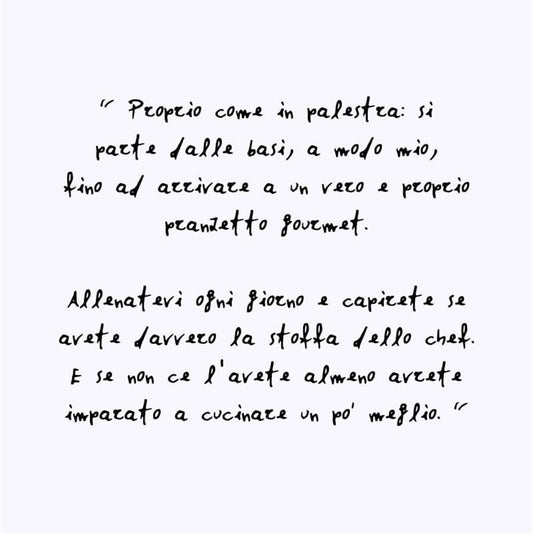 “ Proprio come in palestra: si
parte dalle basi, a modo mio,
fino ad arrivare a un vero e proprio
pranzetto gourmet.
Allenatevi ogni giorno e capirete se
avete davvero la stoffa dello chef.
E se non ce l'avete almeno avrete
imparato a cucinare un po' meglio. “